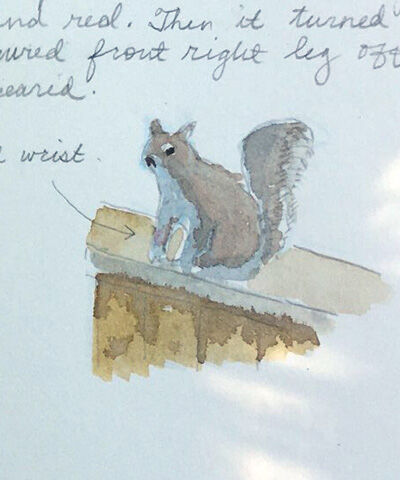 and red. Then it turned
ured front right leg off
peared.
wrist.